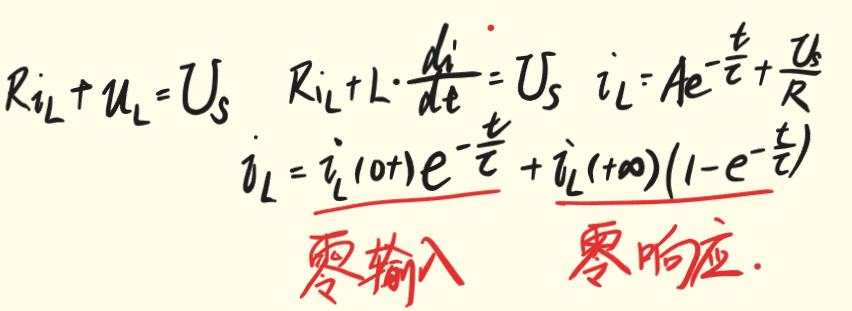 Ri_L + u_L = U_s   Ri_L + L·di/dt = U_s   i_L = Ae^{-t/τ} + U_s/R
i_L = i_L(0+)e^{-t/τ} + i_L(+∞)(1-e^{-t/τ})
零输入   零响应.